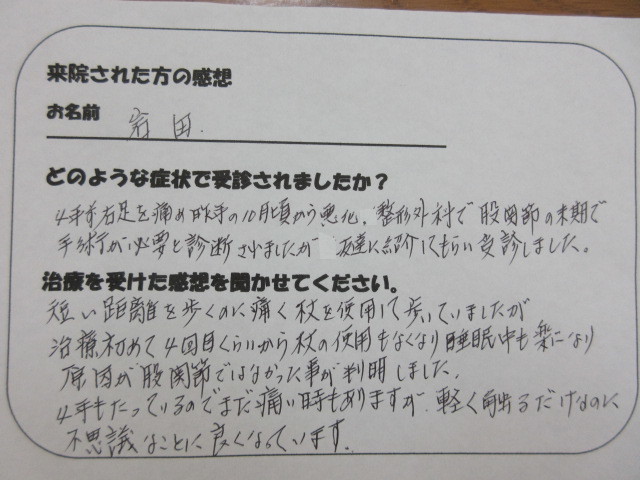 来院された方の感想
お名前 岩田.
どのような症状で受診されましたか？
4年前右足を痛め昨年の10月頃から悪化、整形外科で股関節の末期で
手術が必要と診断されましたが 友達に紹介してもらい受診しました。
治療を受けた感想を聞かせてください。
短い距離を歩くのに痛く杖を使用して歩いていましたが
治療初めて4回目くらいから杖の使用もなくなり睡眠中も楽になり
原因が股関節ではなかった事が判明しました。
4年もたっているのでまだ痛い時もありますが、軽く触るだけなのに
不思議なことに良くなっています。